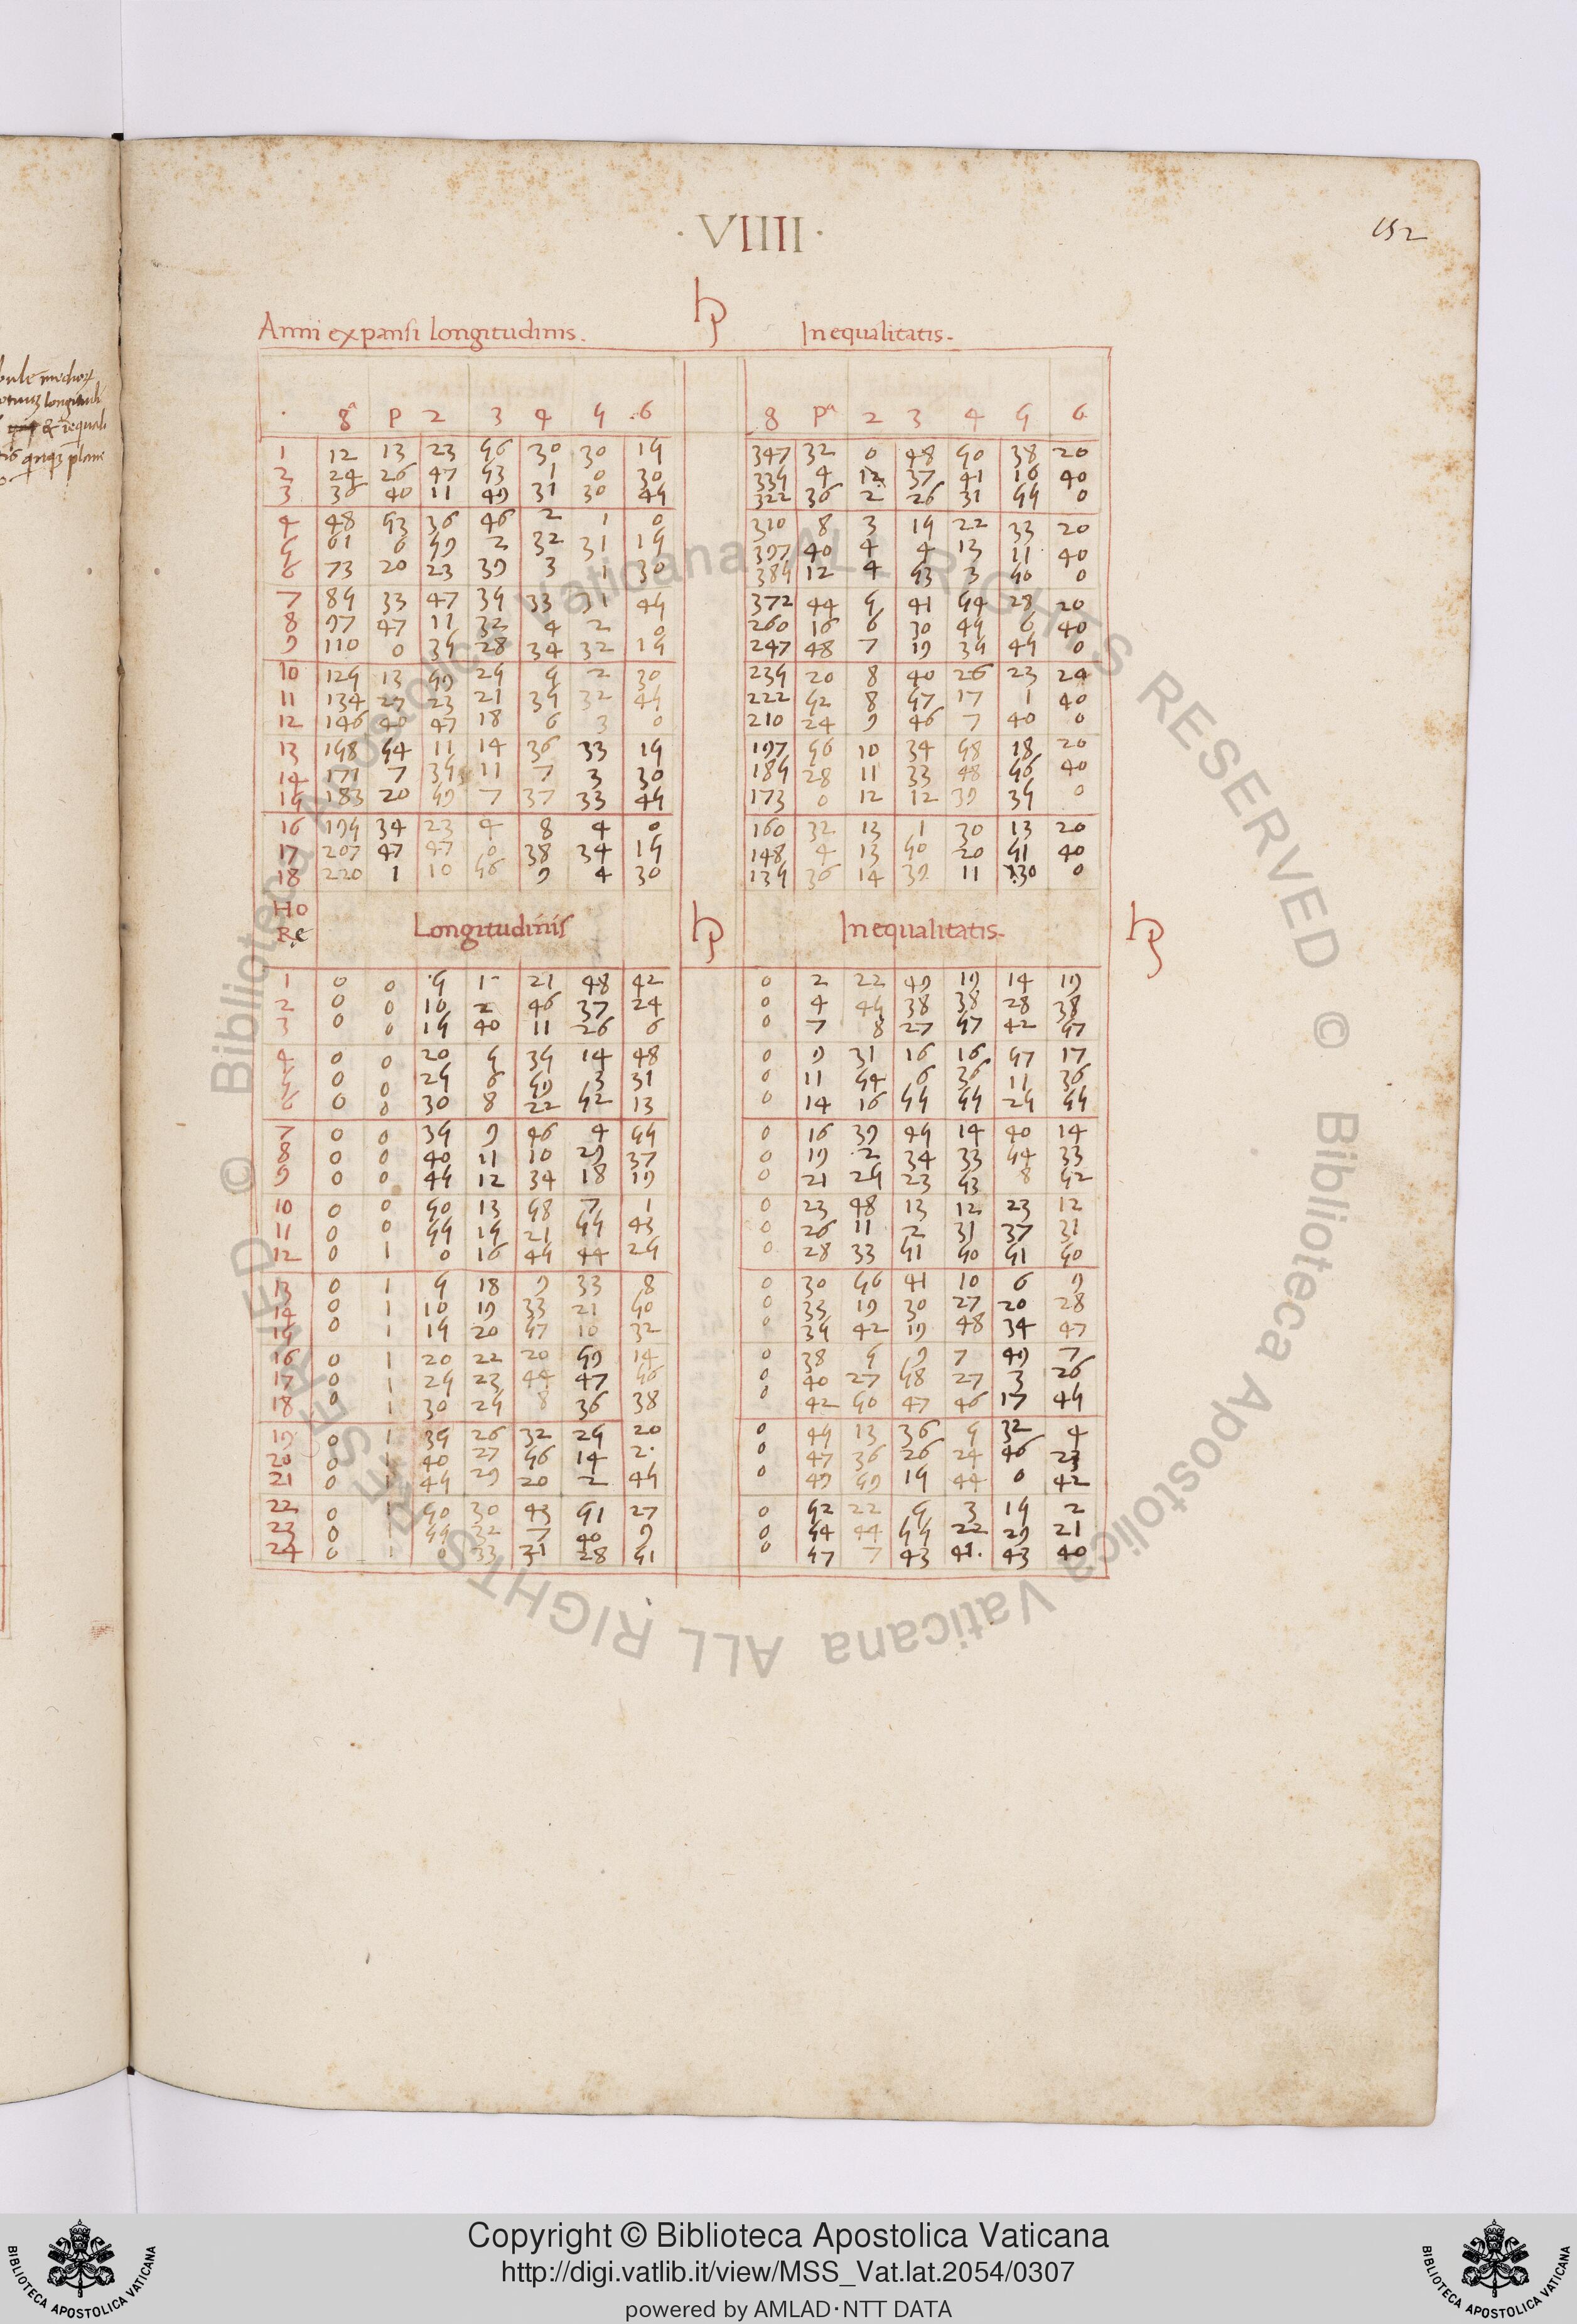 · VIIII ·
152
♄
Anni expansi longitudinis. Inequalitatis.
8ᵃ P 2 3 4 5 6 8 Pᵃ 2 3 4 5 6
1 12 13 23 56 30 30 15 347 32 0 48 50 38 20
2 24 26 47 53 1 0 30 335 4 12 37 41 16 40
3 36 40 11 49 31 30 45 322 36 2 26 31 55 0
4 48 53 36 46 2 1 0 310 8 3 15 22 33 20
5 61 6 59 2 32 31 15 397 40 4 4 13 11 40
6 73 20 23 39 3 1 30 385 12 4 53 3 50 0
7 85 33 47 35 33 31 45 372 44 5 41 54 28 20
8 97 47 11 32 4 2 0 260 16 6 30 45 6 40
9 110 0 35 28 34 32 15 247 48 7 19 35 45 0
10 125 13 59 25 5 2 30 235 20 8 40 26 23 24
11 134 27 23 21 35 32 45 222 52 8 57 17 1 40
12 146 40 47 18 6 3 0 210 24 9 46 7 40 0
13 158 54 11 14 36 33 15 197 56 10 34 58 18 20
14 171 7 35 11 7 3 30 185 28 11 33 48 56 40
15 183 20 59 7 37 33 45 173 0 12 12 39 35 0
16 195 34 23 4 8 4 0 160 32 13 1 30 13 20
17 207 47 47 0 38 34 15 148 4 13 50 20 51 40
18 220 1 10 56 9 4 30 135 36 14 39 11 30 0
HoRe Longitudinis ♄ Inequalitatis. ♄
1 0 0 5 1 21 48 42 0 2 22 49 19 14 19
2 0 0 10 2 46 37 24 0 4 45 38 38 28 38
3 0 0 15 40 11 26 6 0 7 8 27 57 42 57
4 0 0 20 5 35 14 48 0 9 31 16 16 57 17
5 0 0 25 6 59 3 31 0 11 54 6 36 11 36
6 0 0 30 8 22 52 13 0 14 16 55 55 25 55
7 0 0 35 9 46 4 55 0 16 39 45 14 40 14
8 0 0 40 11 10 29 37 0 19 2 34 33 54 33
9 0 0 45 12 34 18 19 0 21 25 23 53 8 52
10 0 0 50 13 58 7 1 0 23 48 13 12 23 12
11 0 0 55 15 21 55 43 0 26 11 2 31 37 31
12 0 1 0 16 45 44 25 0 28 33 51 50 51 50
13 0 1 5 18 9 33 8 0 30 56 41 10 6 9
14 0 1 10 19 33 21 50 0 33 19 30 27 20 28
15 0 1 15 20 57 10 32 0 35 42 19 48 34 47
16 0 1 20 22 20 59 14 0 38 5 9 7 49 7
17 0 1 25 23 44 47 56 0 40 27 58 27 3 26
18 0 1 30 25 8 36 38 0 42 50 47 46 17 45
19 0 1 35 26 32 25 20 0 45 13 36 5 32 4
20 0 1 40 27 56 14 2 0 47 36 26 24 46 23
21 0 1 45 29 20 2 45 0 49 59 15 44 0 42
22 0 1 50 30 43 51 27 0 52 22 5 3 15 2
23 0 1 55 32 7 40 9 0 54 44 55 22 29 21
24 0 1 0 33 31 28 51 0 57 7 43 41 43 40
© Biblioteca Apostolica Vaticana ALL RIGHTS RESERVED © Biblioteca Apostolica Vaticana ALL RIGHTS RESERVED
Copyright © Biblioteca Apostolica Vaticana
http://digi.vatlib.it/view/MSS_Vat.lat.2054/0307
powered by AMLAD·NTT DATA
BIBLIOTECA APOSTOLICA VATICANA
BIBLIOTECA APOSTOLICA VATICANA